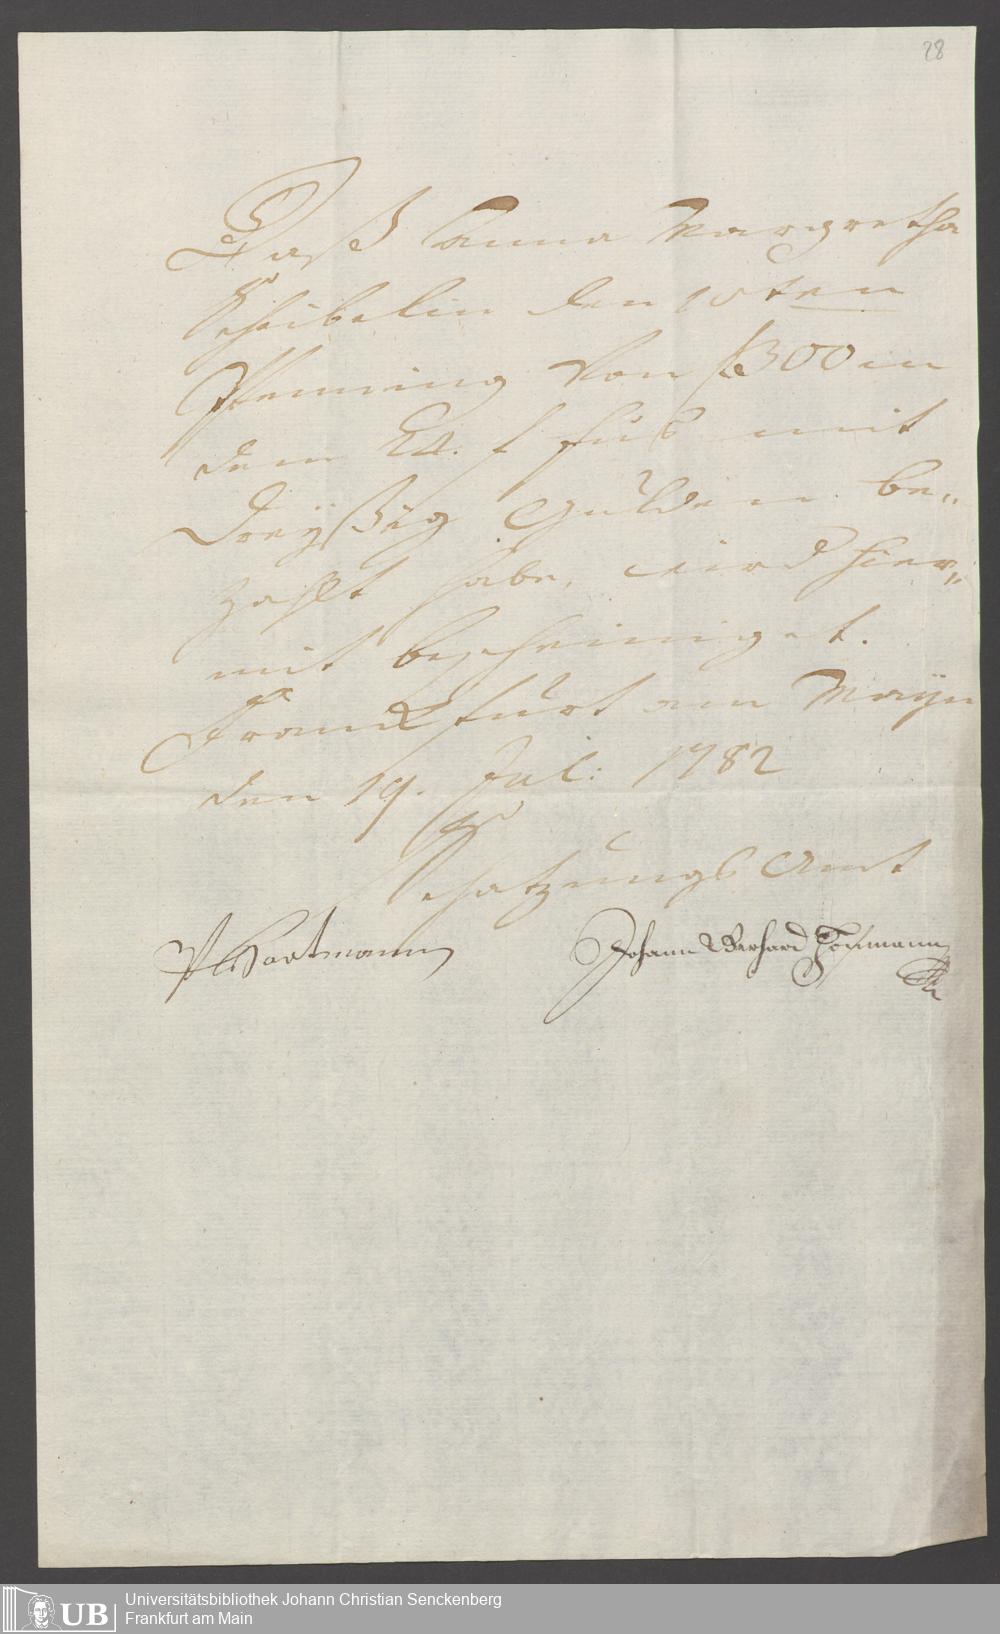 28
Daß Anna Margretha
Scheibelin den 10ten
Pfenning von f 300 in
dem 24. f fus mit
Dreyßig Gulden be„
zahlt habe, wird hier„
mit bescheiniget.
Franckfurt am Mayn
den 19. Jul: 1782
Schatzungs Amt
Hartmann
Johann Gerhard Hofmann
UB
Universitätsbibliothek Johann Christian Senckenberg
Frankfurt am Main